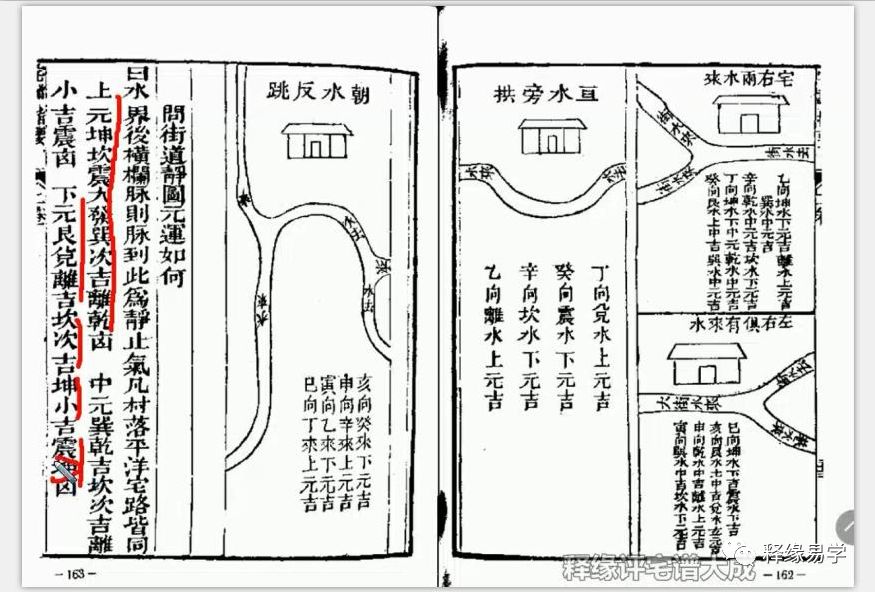 宅右兩水來
街水來
街水去
乙向坤水下元吉離水上元吉
巽水中元吉
辛向乾水中元吉坎水下元吉
丁向坤水下中元乾水中元吉
癸向艮水上中吉巽水中元吉
左右俱有來水
大街水來
巳向坤水下吉震水下吉
亥向艮水上中吉兌水上元吉
申向乾水中吉離水上元吉
寅向巽水中吉坎水下元吉
亘水旁拱
水來
丁向兌水上元吉
癸向震水下元吉
辛向坎水下元吉
乙向離水上元吉
—162—
朝水反跳
水來
亥向癸來下元吉
申向辛來上元吉
寅向乙來下元吉
巳向丁來上元吉
問街道靜圖元運如何
曰水界後橫欄脉則脉到此為靜止氣凡村落平洋宅路皆同
上元坤坎震大發巽次吉離乾凶 中元巽乾吉坎次吉離
小吉震凶 下元艮兌離吉坎次吉坤小吉震凶
—163—
释缘评宅谱大成
释缘易学